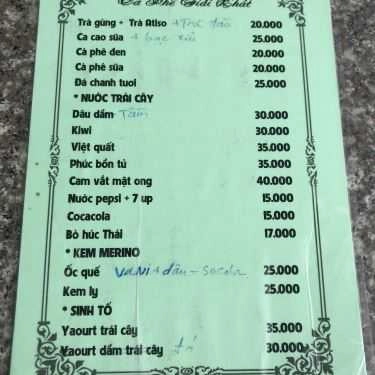 Cà Phê Giải Khát
Trà gừng + Trà Atiso + Trà đào 20.000
Ca cao sữa + bạc xỉu 25.000
Cà phê đen 20.000
Cà phê sữa 20.000
Đá chanh tuoi 25.000
* NƯỚC TRÁI CÂY
Dâu dầm Tằm 30.000
Kiwi 30.000
Việt quất 35.000
Phúc bồn tử 35.000
Cam vắt mật ong 40.000
Nước pepsi + 7 up 15.000
Cocacola 15.000
Bò húc Thái 17.000
* KEM MERINO
Ốc quế vani + dâu - socola 25.000
Kem ly 25.000
* SINH TỐ
Yaourt trái cây 35.000
Yaourt dầm trái cây đá 30.000